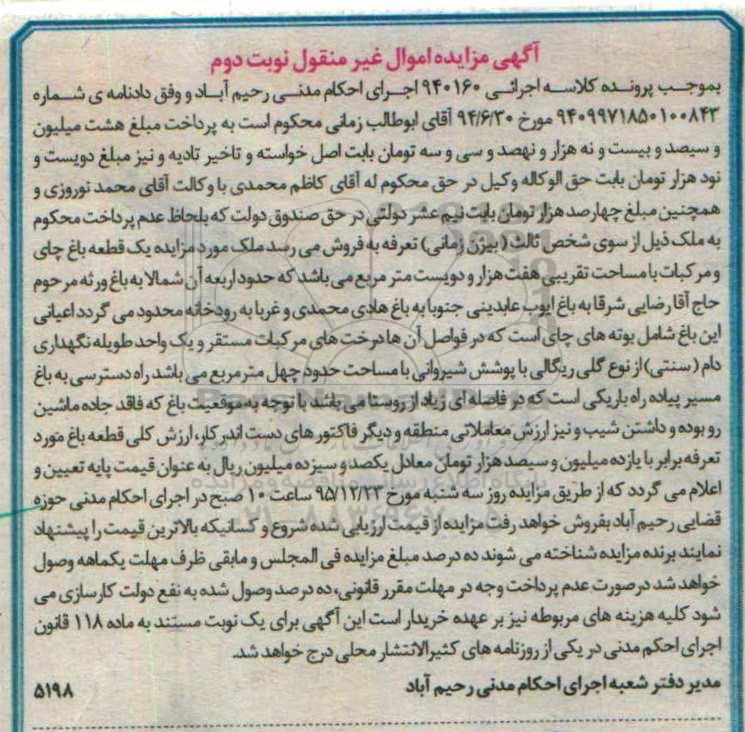 آگهی مزایده اموال غیر منقول نوبت دوم
بموجب پرونده کلاسه اجرائی ۹۴۰۱۶۰ اجرای احکام مدنی رحیم آباد و وفق دادنامه ی شماره
۹۴۰۹۹۷۱۸۵۰۱۰۰۸۴۳ مورخ ۹۴/۶/۳۰ آقای ابوطالب زمانی محکوم است به پرداخت مبلغ هشت میلیون
و سیصد و بیست و نه هزار و نهصد و سی و سه تومان بابت اصل خواسته و تاخیر تادیه و نیز مبلغ دویست و
نود هزار تومان بابت حق الوکاله وکیل در حق محکوم له آقای کاظم محمدی با وکالت آقای محمد نوروزی و
همچنین مبلغ چهارصد هزار تومان بابت نیم عشر دولتی در حق صندوق دولت که بلحاظ عدم پرداخت محکوم
به ملک ذیل از سوی شخص ثالث (بیژن زمانی) تعرفه به فروش می رسد ملک مورد مزایده یک قطعه باغ چای
و مرکبات با مساحت تقریبی هفت هزار و دویست متر مربع می باشد که حدود اربعه آن شمالا به باغ ورثه مرحوم
حاج آقا رضایی شرقا به باغ ایوب عابدینی جنوبا به باغ هادی محمدی و غربا به رودخانه محدود می گردد اعیانی
این باغ شامل بوته های چای است که در فواصل آن ها درخت های مرکبات مستقر و یک واحد طویله نگهداری
دام (سنتی) از نوع گلی ریگالی با پوشش شیروانی با مساحت حدود چهل متر مربع می باشد راه دسترسی به باغ
مسیر پیاده راه باریکی است که در فاصله ای زیاد از روستا می باشد با توجه به موقعیت باغ که فاقد جاده ماشین
رو بوده و داشتن شیب و نیز ارزش معاملاتی منطقه و دیگر فاکتور های دست اندر کار، ارزش کلی قطعه باغ مورد
تعرفه برابر با یازده میلیون و سیصد هزار تومان معادل یکصد و سیزده میلیون ریال به عنوان قیمت پایه تعیین و
اعلام می گردد که از طریق مزایده روز سه شنبه مورخ ۹۵/۱۲/۲۳ ساعت ۱۰ صبح در اجرای احکام مدنی حوزه
قضایی رحیم آباد بفروش خواهد رفت مزایده از قیمت ارزیابی شده شروع و کسانیکه بالاترین قیمت را پیشنهاد
نمایند برنده مزایده شناخته می شوند ده درصد مبلغ مزایده فی المجلس و مابقی ظرف مهلت یکماهه وصول
خواهد شد در صورت عدم پرداخت وجه در مهلت مقرر قانونی، ده درصد وصول شده به نفع دولت کارسازی می
شود کلیه هزینه های مربوطه نیز بر عهده خریدار است این آگهی برای یک نوبت مستند به ماده ۱۱۸ قانون
اجرای احکم مدنی در یکی از روزنامه های کثیرالانتشار محلی درج خواهد شد.
مدیر دفتر شعبه اجرای احکام مدنی رحیم آباد ۵۱۹۸